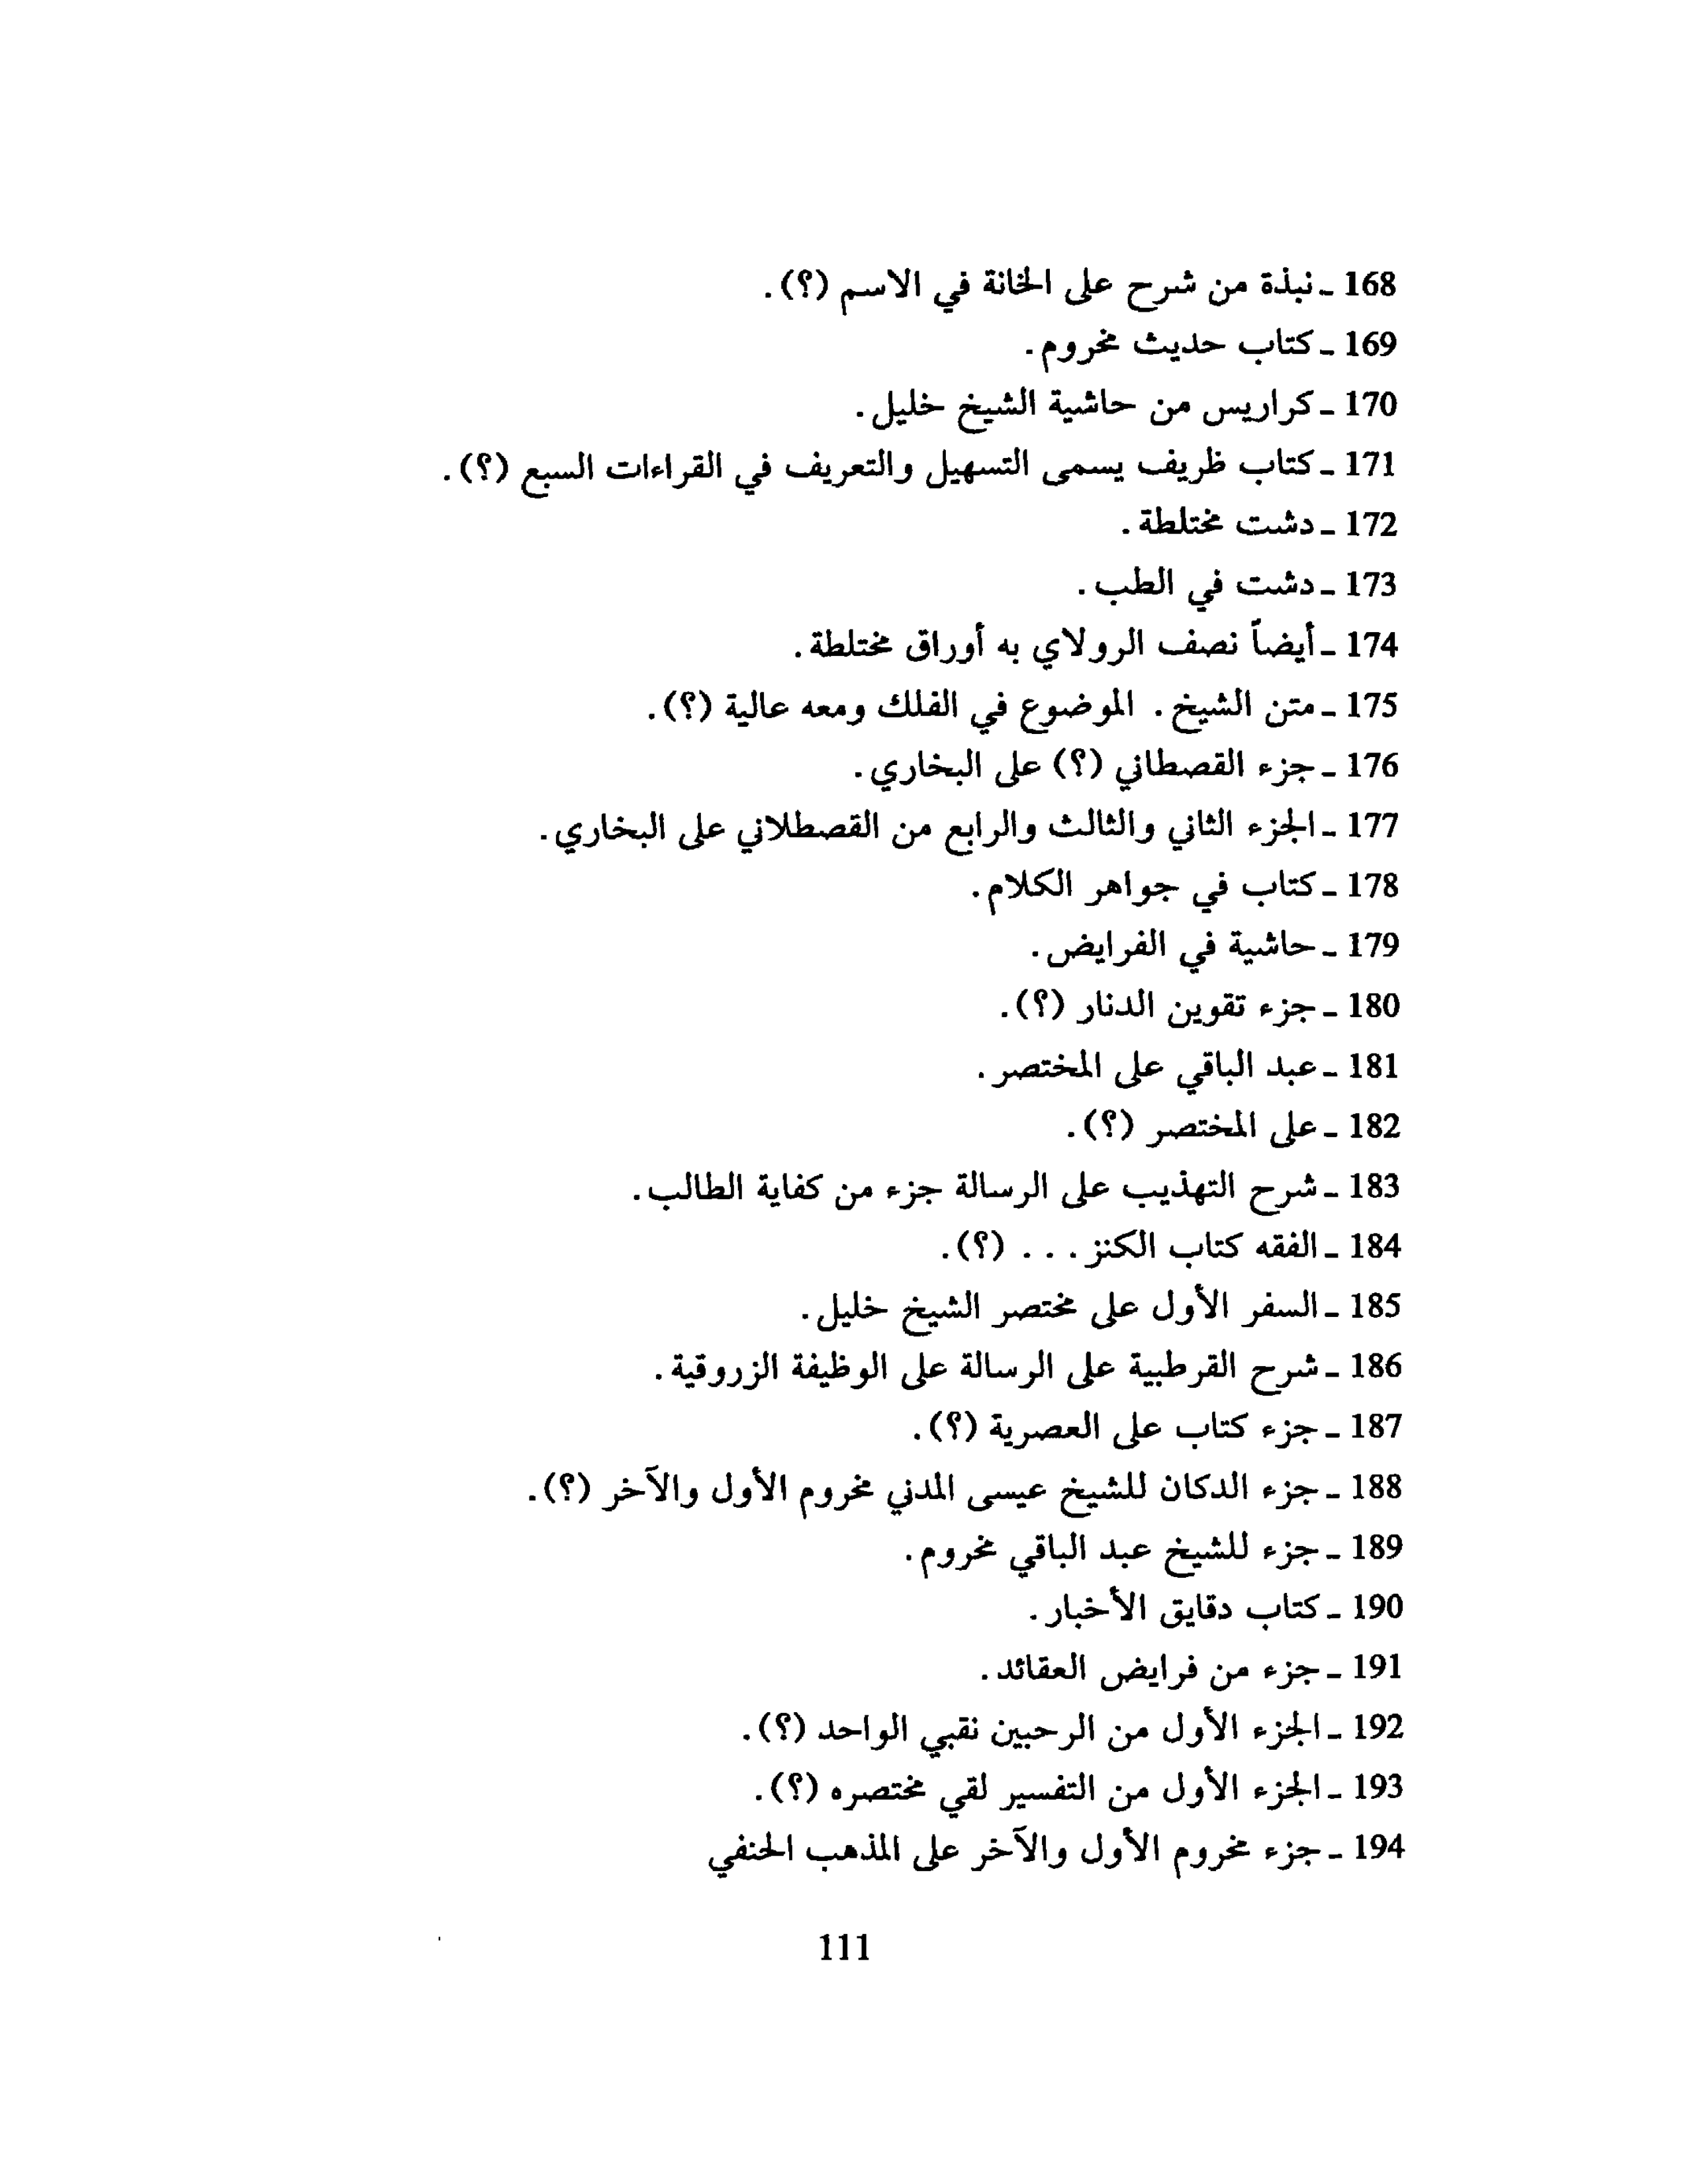 168 ـ نبذة من شرح على الخانة في الاسم (؟).
169 ـ كتاب حديث مخروم.
170 ـ كراريس من حاشية الشيخ خليل.
171 ـ كتاب ظريف يسمى التسهيل والتعريف في القراءات السبع (؟).
172 ـ دشت مختلطة.
173 ـ دشت في الطب.
174 ـ أيضاً نصف الرولاي به أوراق مختلطة.
175 ـ متن الشيخ. الموضوع في الفلك ومعه عالية (؟).
176 ـ جزء القصطاني (؟) على البخاري.
177 ـ الجزء الثاني والثالث والرابع من القصطلاني على البخاري.
178 ـ كتاب في جواهر الكلام.
179 ـ حاشية في الفرايض.
180 ـ جزء تقوين الدنار (؟).
181 ـ عبد الباقي على المختصر.
182 ـ على المختصر (؟).
183 ـ شرح التهذيب على الرسالة جزء من كفاية الطالب.
184 ـ الفقه كتاب الكنز . . . (؟).
185 ـ السفر الأول على مختصر الشيخ خليل.
186 ـ شرح القرطبية على الرسالة على الوظيفة الزروقية.
187 ـ جزء كتاب على العصرية (؟).
188 ـ جزء الدكان للشيخ عيسى المدني مخروم الأول والآخر (؟).
189 ـ جزء للشيخ عبد الباقي مخروم.
190 ـ كتاب دقايق الأخبار.
191 ـ جزء من فرايض العقائد.
192 ـ الجزء الأول من الرحبين نقبي الواحد (؟).
193 ـ الجزء الأول من التفسير لقي مختصره (؟).
194 ـ جزء مخروم الأول والآخر على المذهب الحنفي
111